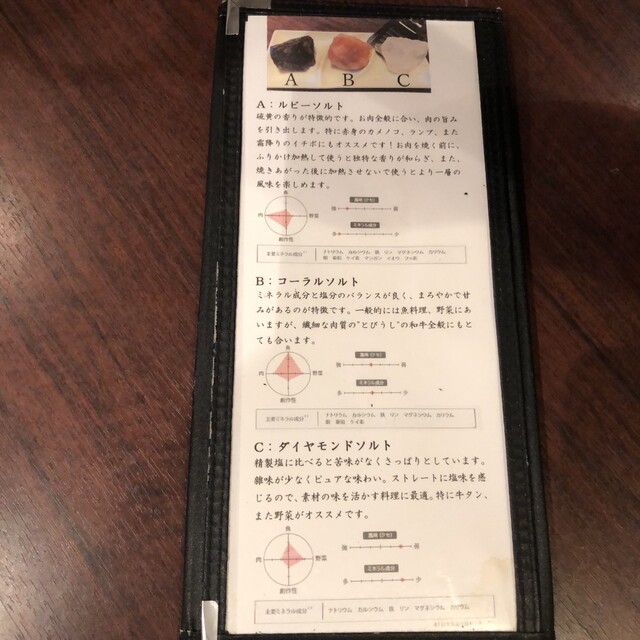 A B C
A：ルビーソルト
硫黄の香りが特徴的です。お肉全般に合い、肉の旨み
を引き出します。特に赤身のカメノコ、ランプ、また
霜降りのイチボにもオススメです！お肉を焼く前に、
ふりかけ加熱して使うと独特な香りが和らぎ、また、
焼きあがった後に加熱させないで使うとより一層の
風味を楽しめます。
魚
肉 野菜
創作性
風味(クセ)
強 弱
ミネラル成分
多 少
主要ミネラル成分
ナトリウム カルシウム 鉄 リン マグネシウム カリウム
銅 亜鉛 ケイ素 マンガン イオウ フッ素
B：コーラルソルト
ミネラル成分と塩分のバランスが良く、まろやかで甘
みがあるのが特徴です。一般的には魚料理、野菜にあ
いますが、繊細な肉質の"とびうし"の和牛全般にもと
ても合います。
魚
肉 野菜
創作性
風味(クセ)
強 弱
ミネラル成分
多 少
主要ミネラル成分
ナトリウム カルシウム 鉄 リン マグネシウム カリウム
銅 亜鉛 ケイ素
C：ダイヤモンドソルト
精製塩に比べると苦味がなくさっぱりとしています。
雑味が少なくピュアな味わい。ストレートに塩味を感
じるので、素材の味を活かす料理に最適。特に牛タン、
また野菜がオススメです。
魚
肉 野菜
創作性
風味(クセ)
強 弱
ミネラル成分
多 少
主要ミネラル成分
ナトリウム カルシウム 鉄 リン マグネシウム カリウム